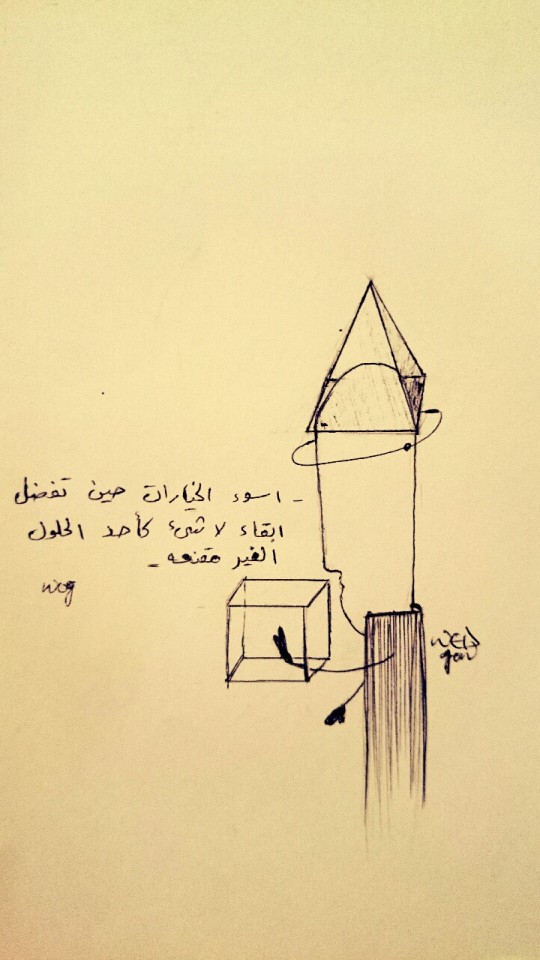 - اسوء الخيارات حين تفضل
ابقاء لا شئ كأحد الحلول
الغير مقنعه -